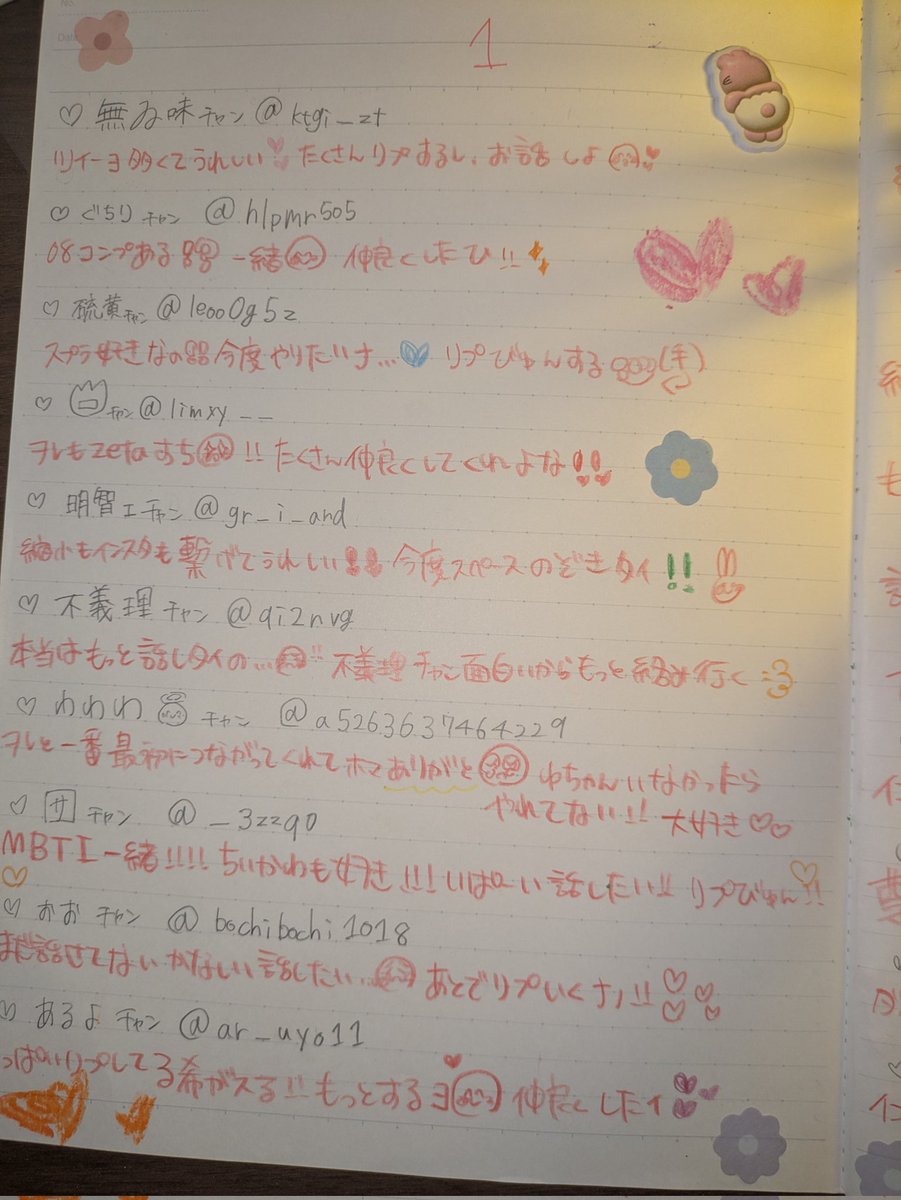 No.
Date
1
♡ 無ゐ味チャン @ktgi_zt
ツイート多くてうれしい たくさんリプするし、お話しよ
♡ ぐちり チャン @hlpmr505
08コンプある 一緒 仲良くしたひ!!
♡ 硫黄チャン @leoo0g5z
スプラ好きなの 今度やりたいナ… リプびゅんする (手)
♡ 凸 チャン @limxy__
ヲレもzetaすち !! たくさん仲良くしてくれよな!!
♡ 明智エチャン @gr_i_and
縮小もインスタも繋げてうれしい!! 今度スペースのぞきタイ !!
♡ 不義理チャン @qi2nvg
本当はもっと話しタイの… !! 不義理チャン面白いからもっと絡み行く :3
♡ わわわ チャン @a5263637464229
ヲレと一番最初につながってくれてホマありがと わちゃんいなかったら
やれてない!! 大好き♡♡
♡ サ チャン @_3zzq0
MBTI一緒!!!! ちいかわも好き!!! いぱーい話したい!! リプびゅん!!
♡ おお チャン @bochibochi1018
まだ話せてないかなしい話したい… あとでリプいくナ!! ♡♡♡
♡ あるよチャン @ar_uyo11
っぱいリプしてる希がスる!! もっとするヨ 仲良くしたイ